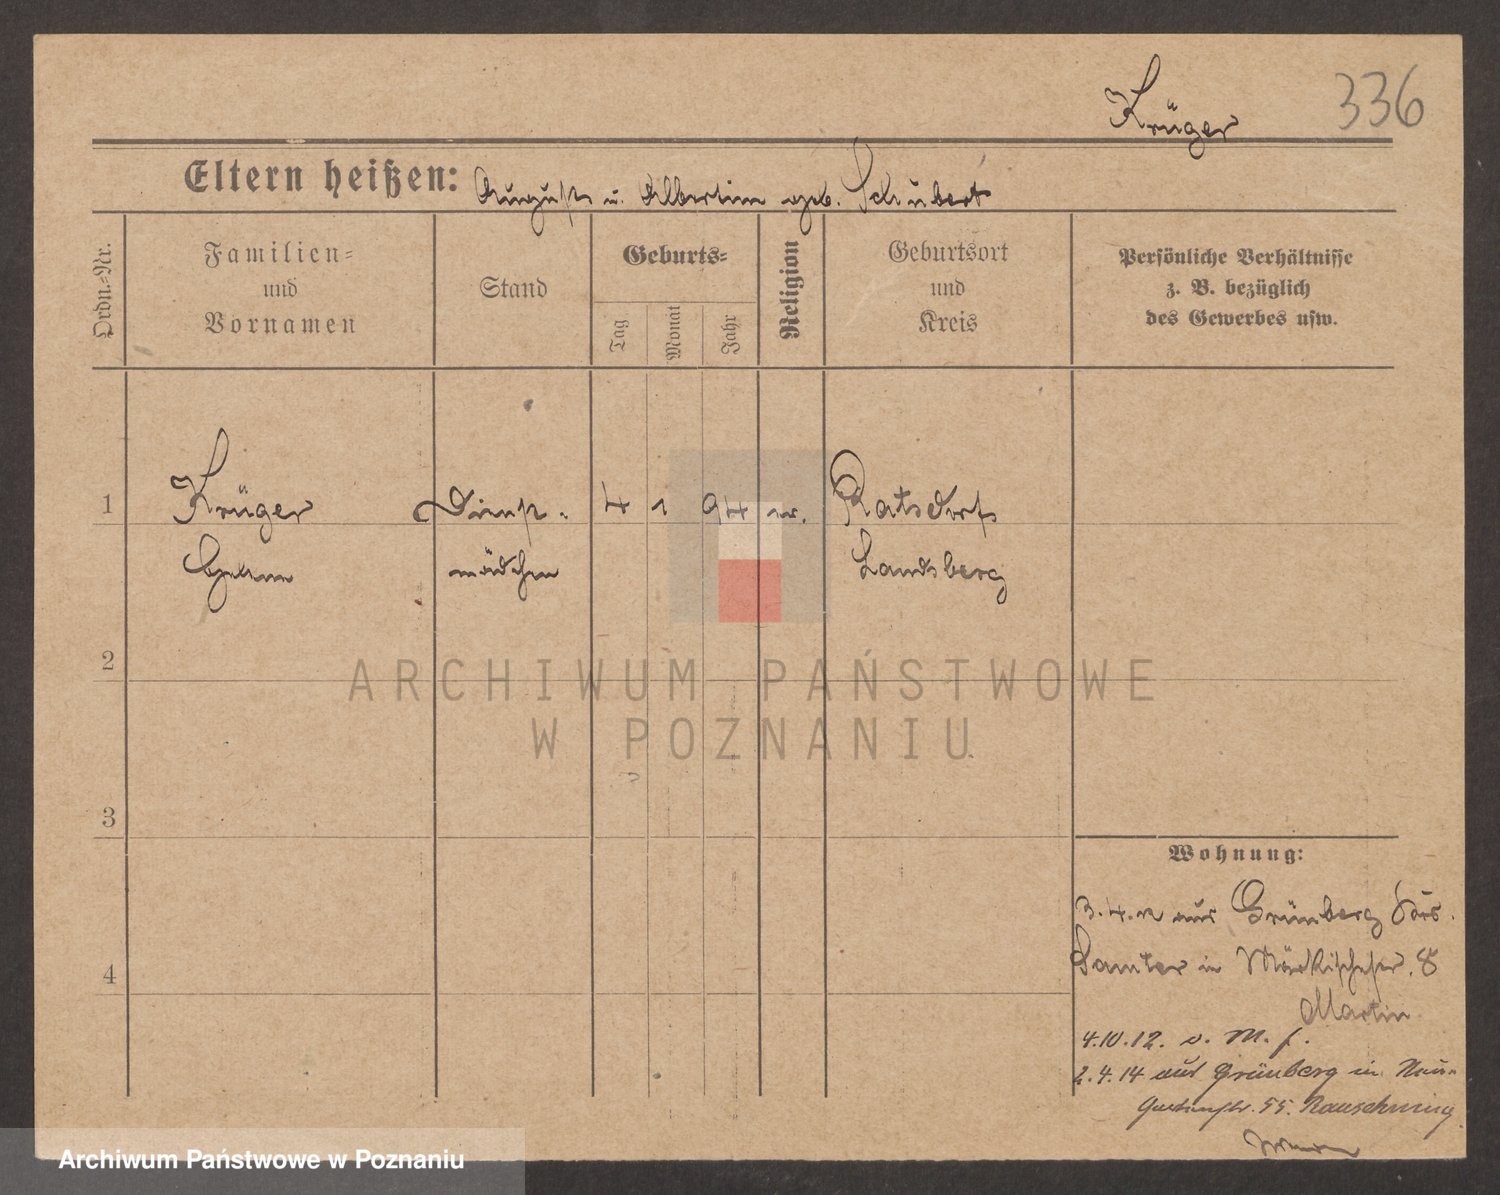 Krüger 336
Eltern heißen: August u. Albertine geb. Schubert
Ordn.=Nr.
Familien=
und
Vornamen
Stand
Geburts=
Tag
Monat
Jahr
Religion
Geburtsort
und
Kreis
Persönliche Verhältnisse
z. B. bezüglich
des Gewerbes usw.
1 Krüger Dienst- 4 1 94 ev. Ratsdorf
mädchen Landsberg
2
ARCHIWUM PAŃSTWOWE
W POZNANIU
3
Wohnung:
3.4.12 aus Grünberg Krs.
Samter in Märkischestr. 8
4
Martin
4.10.12. v. M. f.
2.4.14 aus Grünberg in Neue
Gartenstr. 55. Rauschning
Archiwum Państwowe w Poznaniu